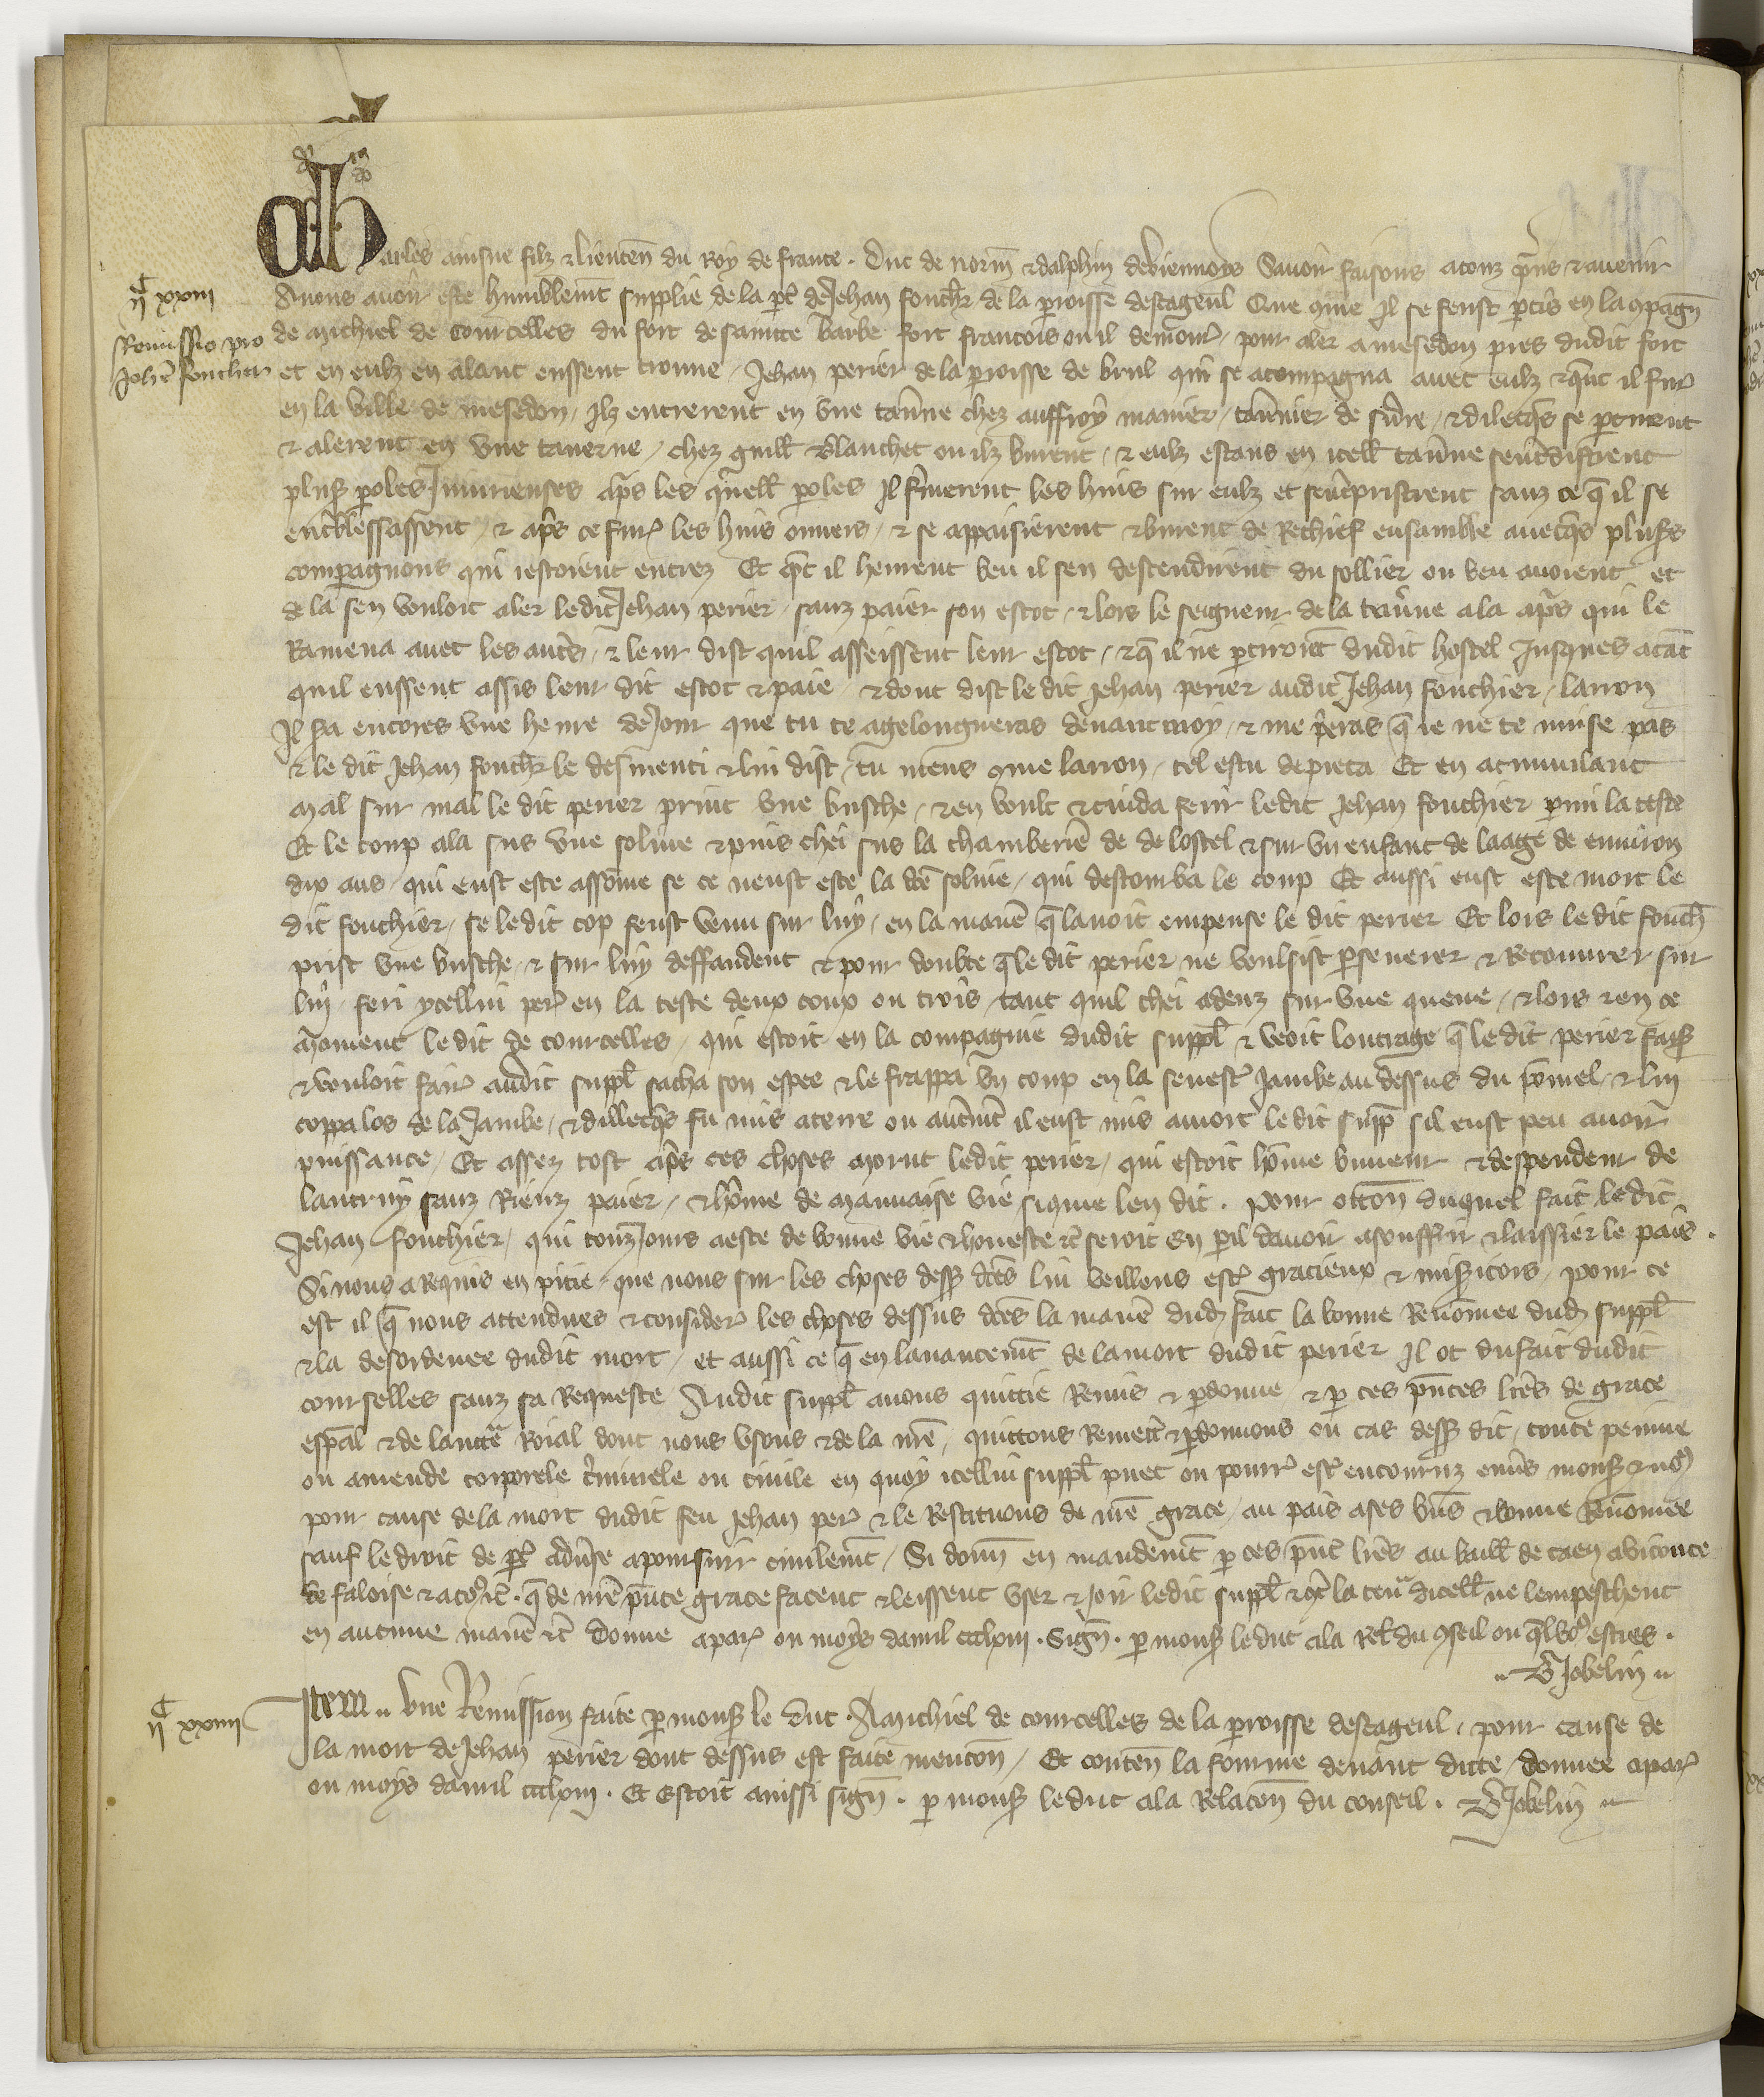 Charles ainsne filz & lieuten̄ du Roy de france . Duc de norm̄ & dalphin de viennoys Savoir faisons a touz p̄ns & avenir
IIᶜ XXIII
Remissio pro
Joh̄e foucher
Avons avoir este humblem̄t supplie de la p̄t de Jehan fouch̄r de la p̄oisse destageul Que c̄me Il se feust p̄tis en la c̄pagn̄
de Michiel de Courcelles du fort de sainte barbe fort francois ou il demour̄ / pour aler a mesedon pres dudit fort
et en eulz en alant eussent trouve / Jehan perier de la p̄oisse de brul qui se acompagna avec eulz & q̄nt il fur̄
en la ville de mesedon / Ilz entrerent en une tav̄ne chez auffroy manier / tav̄nier de sidre / & dilecq̄s se p̄tirent
& alerent en une taverne / chez guill̄ blanchet ou ilz burent / & eulz estans en icell̄ tav̄ne sent̄disdrent
plus̄ p̄oles Iniurieuses ap̄s les q̄uell̄ p̄oles Il f̄merent les huis sur eulz et sent̄pristrent sanz ce q̄ il se
ent̄blessassent / & ap̄s ce fur̄ les huis ouvers / & se appaisierent & burent de Rechief ensamble avecq̄s plus̄s
compagnons qui i estoient entrez Et q̄nt il heurent beu il sen descendirent du sollier ou beu avoient et
de la sen vouloit aler ledit Jehan perier / sanz paier son escot / & lors le seigneur de la tav̄ne ala ap̄s qui le
Ramena avec les aut̄s / & leur dist quil asseissent leur escot / & q̄ il ne p̄tiroit dudit hostel Jusques atāt
quil eussent assis leur dit escot & paie / & dont dist le dit Jehan perier audit Jehan fouchier / larron
Il ya encores une heure de Jour que tu te agelongneras devant moy / & me p̄eras q̄ ie ne te nuise pas
& le dit Jehan fouch̄r le desmenti & lui dist / tu mens c̄me larron / tel es tu de pieca Et en acumulant
mal sur mal le dit perier print une busche / & en voult & cuida ferir ledit Jehan fouchier p̄mi la teste
Et le coup ala sus une solive & puis chei sus la chamberie de de lostel & sur un enfant de laage de environ
dix ans / qui eust este assomme se ce neust este la dc̄e solive / qui destomba le coup Et aussi eust este mort le
dit fouchier / se ledit cop feust venu sur luy / en la mani̇e q̄ lavoit empense le dit perier Et lors le dit fouch̄
prist une busche / & sur luy deffandent & pour doubte q̄ le dit perier ne voulsist p̄severer & Recouvrer sur
lui / feri ycellui per̄ en la teste deux coup ou trois / tant quil chei adenz sur une queue / & lors & en ce
moment le dit de courcelles / qui estoit en la compagnie dudit suppl̄ & veoit loutrage q̄ le dit perier fais̄
& vouloit fair̄ audit suppl̄ sacha son espee & le frappa un coup en la senest̄ Jambe au dessus du p̄mel / & lui
coppa los de la Jambe / & dillecq̄s fu mis a terre ou aut̄m̄t il eust mis a mort le dit supp̄ sil eust peu avoir
puissance / Et assez tost ap̄s ces choses morut ledit perier / qui estoit hōme buveur & despendeur de
lautruy sanz Rienz paier / & hōme de mauvaise vie si c̄me len dit . Pour ottōn duquel fait ledit
Jehan fouchier / qui touzJours a este de bonne vie & honeste &c̄ seroit en p̄il davoir a souffrir & laissier le pais .
Si nous a Requis en pitie / que nous sur les choses dess̄ dc̄es lui veillons est̄ gracieux & mis̄icors / pour ce
est il q̄ nous attendues & consider̄ les choses dessus dc̄es la mani̇e dud̄ fait la bonne Renōmee dud̄ suppl̄
& la desordenee dudit mort / et aussi ce q̄ en lavancem̄t de la mort dudit perier Il ot du fait dudit
courselles sanz sa Requeste Audit suppl̄ avons quittie Remis & p̄donne & p̄ ces p̄ntes lr̄es de grace
esp̄al & de lauct̄e Roial dont nous usons & de la nr̄e / quittons Remett̄ & p̄donnons ou cas dess̄ dit / toute peinne
ou amende corporele c̄minele ou civile en quoy icellui suppl̄ puet ou pourr̄ est̄ encouruz env̄s mons̄ & nꝰ
pour cause de la mort dudit feu Jehan per̄ & le Restituons de nr̄e grace / au pais a ses bn̄s & bonne Renōmee
sauf le droit de p̄t adv̄se a poursuir civilem̄t / Si donn̄ en mandem̄t p̄ ces p̄nt̄ lr̄es au baill̄ de caen au viconte
de faloise & a toꝰ &c̄ . q̄ de nr̄e p̄nte grace facent & leissent user & Joir ledit suppl̄ & c̄t̄ la teneur dicell̄ ne lempeschent
en aucune mani̇e &c̄ Donne a par̄ ou moys davril ccclxiii . Sign̄ . p̄ mons̄ le duc a la Rel̄ du c̄seil ou q̄l voꝰ esties .
G Jobelin
IIᶜ XXIIII
Item une Remission faite p̄ mons̄ le duc A Michiel de courcelles de la p̄oisse destageul . pour cause de
la mort de Jehan perier dont dessus est faite mencōn / Et conten̄ la fourme devant dicte / donnee a par̄
ou moys davril ccclxiii . Et estoit aussi sign̄ . p̄ mons̄ le duc a la Relacōn du conseil . G Jobelin